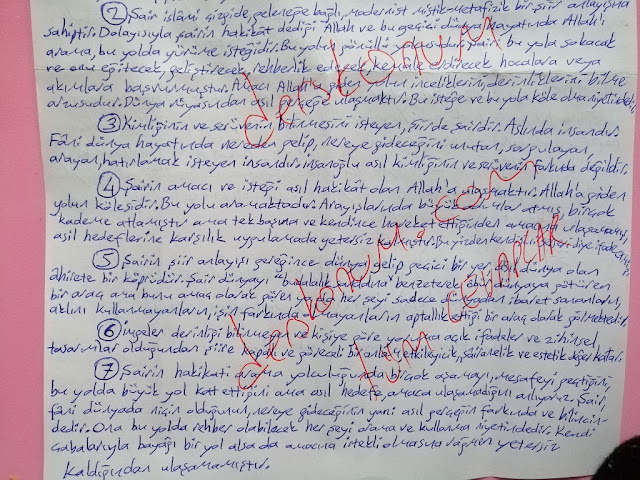 ② Şair islâmi çizgide, geleneğe bağlı, modernist mistik metafizik bir şiir anlayışına
sahiptir. Dolayısıyla şairin hakikât dediği Allah ve bu geçici dünya hayatında Allah'ı
arama, bu yolda yürüme isteğidir. Bu yolun gönüllü yolcusudur. Şair bu yola sokacak
ve onu eğitecek, geliştirecek, rehberlik edecek, hocalara veya
akımlara başvurmuştur. Amacı Allah'a giden yolun inceliklerini, derinliklerini bilme
arzusudur. Dünya rüyasından asıl gerçeğe ulaşmaktır. Bu isteğe ve bu yola köle olma niyetindedir.
③ Kimliğinin ve serüvenin bilinmesini isteyen, şiirde şairdir. Aslında insandır.
Fâni dünya hayatında nereden gelip, nereye gideceğini unutan, sorgulayan,
arayan, hatırlamak isteyen insandır. insanoğlu asıl kimliğinin ve serüvenin farkında değildir.
④ Şairin amacı ve isteği asıl hakikât olan Allah'a ulaşmaktır. Allah'a giden
yolun kölesidir. Bu yolu aramaktadır. Arayışlarında büyük adımlar atmış, birçok
kademe atlamıştır ama tek başına ve kendince hareket ettiğinden amacına ulaşamamış,
asıl hedeflerine karşılık uygulamada yetersiz kalmıştır. Bu yüzden kendisi diye ifade
⑤ Şairin şiir anlayışı gereğince dünya gelip geçici bir yer, asıl dünya olan
ahirete bir köprüdür. Şair dünyayı "budalalık sandalına" benzeterek öbür dünyaya götüren
bir araç ama bunu amaç olarak gören ya da her şeyi sadece dünyadan ibaret sananların,
aklını kullanmayanların, işin farkında olmayanların aptallık ettiği bir araç olarak görmektedir.
⑥ imgeler derinliği bilinmeyen ve kişiye göre yoruma açık ifadeler ve zihinsel
tasarımlar olduğundan şiire kapalı ve görecelik anlam, etkileyicik, şairanelik ve estetik değer katar.
⑦ Şairin hakikati arama yolculuğunda birçok aşamayı, mesafeyi geçtiğini,
bu yolda büyük yol kat ettiğini ama asıl hedefe, amaca ulaşamadığını anlıyoruz. Şair,
fâni dünyada niçin olduğunun, nereye gideceğinin yani asıl gerçeğin farkında ve bilincin-
dedir. Ona bu yolda rehber olabilecek her şeyi arama ve kullanma niyetindedir. Kendi
çabalarıyla bayağı bir yol alsa da amacına istekli olmasına rağmen yetersiz
kaldığından ulaşamamıştır.
derskonum.com
derskonum.com
Tüm CEVAPLAR